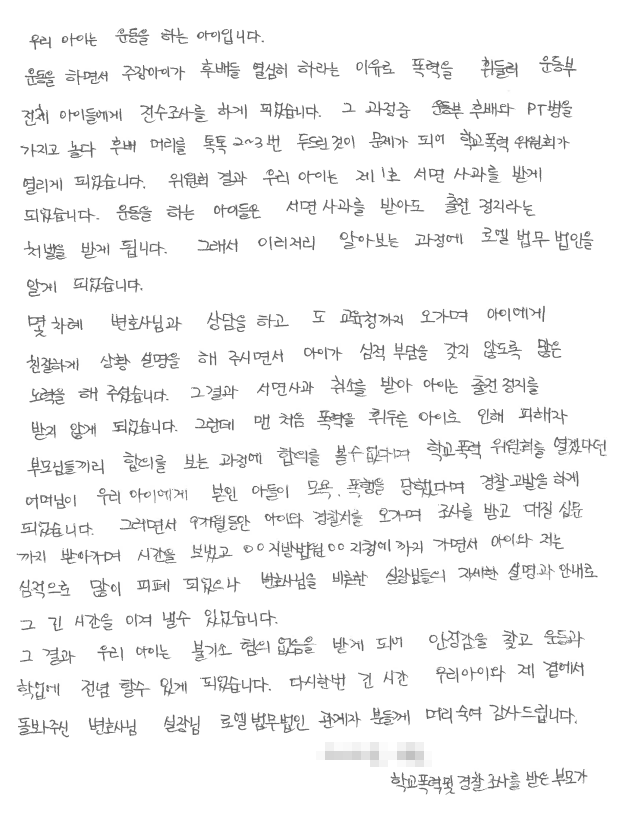 우리 아이는 운동을 하는 아이입니다.
운동을 하면서 주장아이가 후배들 열심히 하라는 이유로 폭력을 휘둘러 운동부
전체 아이들에게 전수조사를 하게 되었습니다. 그 과정중 운동부 후배와 PT병을
가지고 놀다 후배 머리를 톡톡 2~3번 두드린것이 문제가 되어 학교폭력 위원회가
열리게 되었습니다. 위원회 결과 우리 아이는 제1호 서면 사과를 받게
되었습니다. 운동을 하는 아이들은 서면사과를 받아도 출전 정지라는
처벌을 받게 됩니다. 그래서 이리저리 알아보는 과정에 로엘 법무 법인을
알게 되었습니다.
몇 차례 변호사님과 상담을 하고 또 교육청까지 오가며 아이에게
친절하게 상황 설명을 해 주시면서 아이가 심적 부담을 갖지 않도록 많은
노력을 해 주셨습니다. 그결과 서면사과 취소를 받아 아이는 출전정지를
받지 않게 되었습니다. 그런데 맨 처음 폭력을 휘두른 아이로 인해 피해자
부모님들끼리 합의를 보는 과정에 합의를 볼수없다며 학교폭력 위원회를 열겠다던
어머님이 우리아이에게 본인 아들이 모욕, 폭행을 당했다며 경찰고발을 하게
되었습니다. 그러면서 9개월동안 아이와 경찰서를 오가며 조사를 받고 대질 심문
까지 받아가며 시간을 보냈고 ○○지방법원○○지청에까지 가면서 아이와 저는
심적으로 많이 피폐 되었으나 변호사님을 비롯한 실장님들의 자세한 설명과 안내로
그 긴 시간을 이겨 낼수 있었습니다.
그 결과 우리 아이는 불기소 혐의없음을 받게 되어 안정감을 찾고 운동과
학업에 전념 할수 있게 되었습니다. 다시한번 긴 시간 우리아이와 제 곁에서
돌봐주신 변호사님 실장님 로엘법무법인 관계자 분들께 머리숙여 감사드립니다.
학교폭력및 경찰조사를 받은 부모가